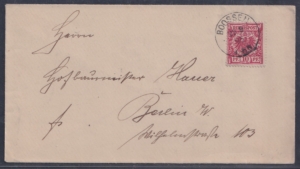 BOOSSEN
Herrn
Hofbaumeister Hauer
Berlin W.
fr. Wilhelmstraße 103